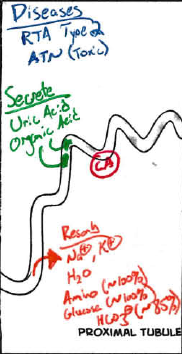 Diseases
RTA Type 2
ATN (Toxic)
Secrete
Uric Acid
Organic Acid
CA
Resorb
Na⊕, K⊕
H₂O
Amino (~100%)
Glucose (~100%)
HCO₃⊖ (~85%)
PROXIMAL TUBULE